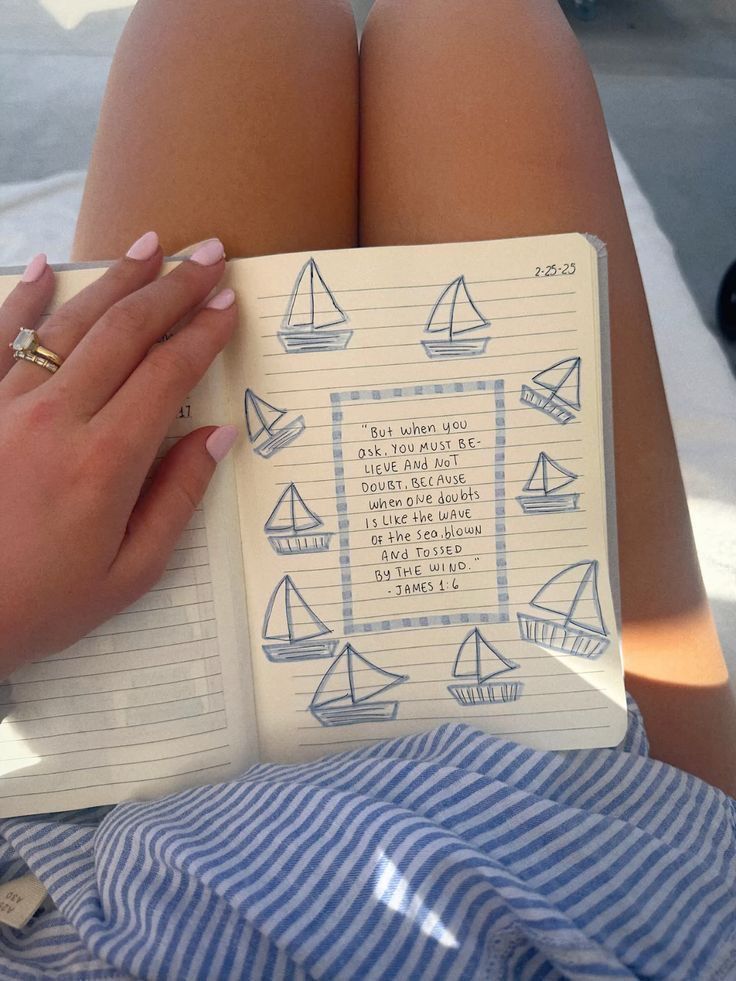 2-25-25
"But when you
ask, YOU MUST BE-
LIEVE AND NOT
DOUBT, BECAUSE
when one doubts
IS LIKE the WAVE
OF the Sea.blown
AND TOSSED
BY THE WIND."
- JAMES 1:6
17
A26
A30